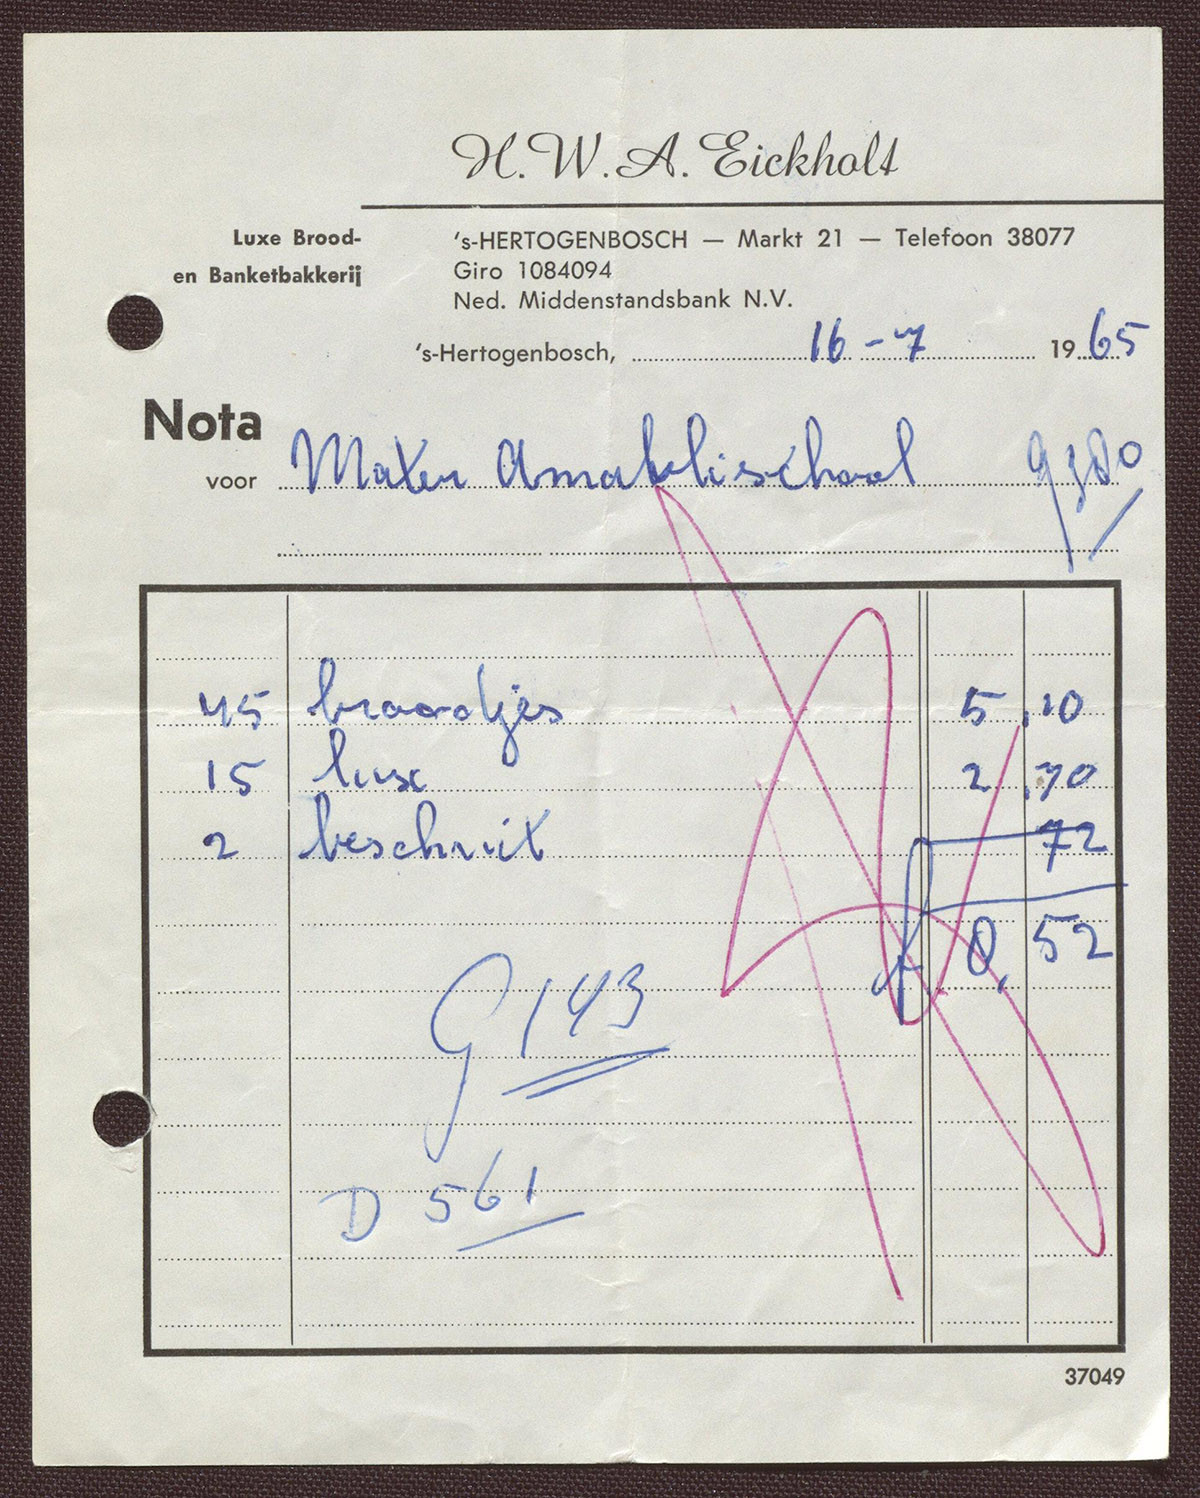 H. W. A. Eickholt
Luxe Brood-
en Banketbakkerij
's-HERTOGENBOSCH — Markt 21 — Telefoon 38077
Giro 1084094
Ned. Middenstandsbank N.V.
's-Hertogenbosch, 16-7 1965
Nota
voor Mater Amabilisschool
45 broodjes 5,10
15 luxe 2,70
2 beschuit 72
f 8,52
G 143
D 561
37049